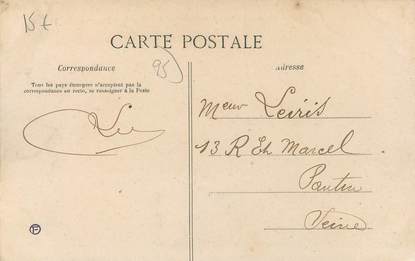 15 f
CARTE POSTALE
Correspondance
95
Adresse
Tous les pays étrangers n'acceptent pas la
correspondance au recto, se renseigner à la Poste
Leiris
13 R Et Marcel
Pantin
Seine